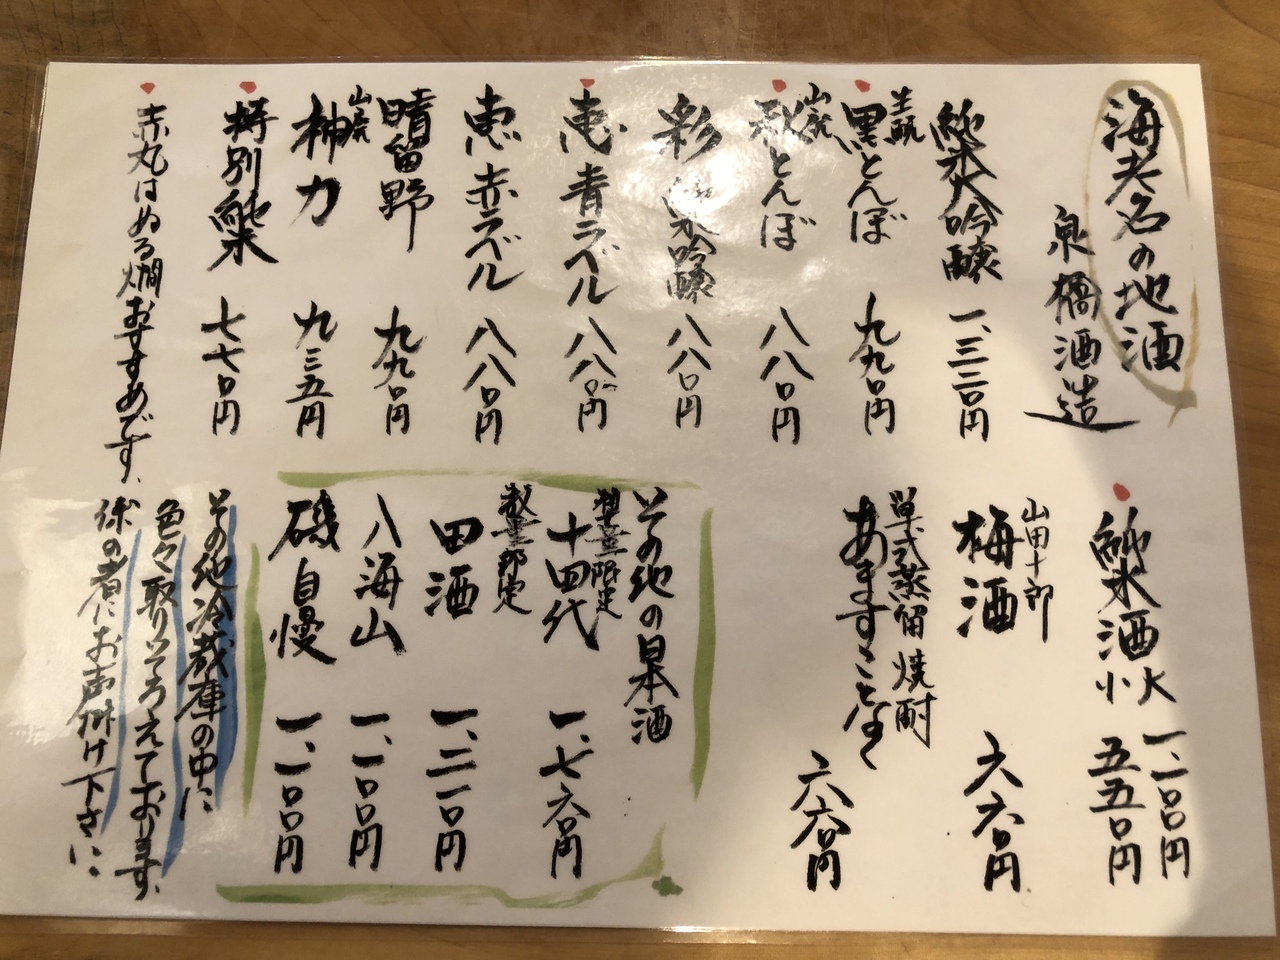 海老名の地酒
泉橋酒造
純米大吟醸 一、三二〇円
生酛
黒とんぼ 九九〇円
山廃
秋とんぼ 八八〇円
彩 純米吟醸 八八〇円
恵 青ラベル 八八〇円
恵 赤ラベル 八八〇円
晴留野 九九〇円
山廃
神力 九三五円
特別純米 七七〇円
赤丸はぬる燗おすすめです、
純米酒 大 一、一〇〇円
小 五五〇円
山田十郎
梅酒 六六〇円
単式蒸留焼酎
あますことなく 六六〇円
その他の日本酒
数量限定
十四代 一、七六〇円
数量限定
田酒 一、二一〇円
八海山 一、一〇〇円
磯自慢 一、一〇〇円
その他冷蔵庫の中に
色々取りそろえております、
係の者にお声掛け下さい、